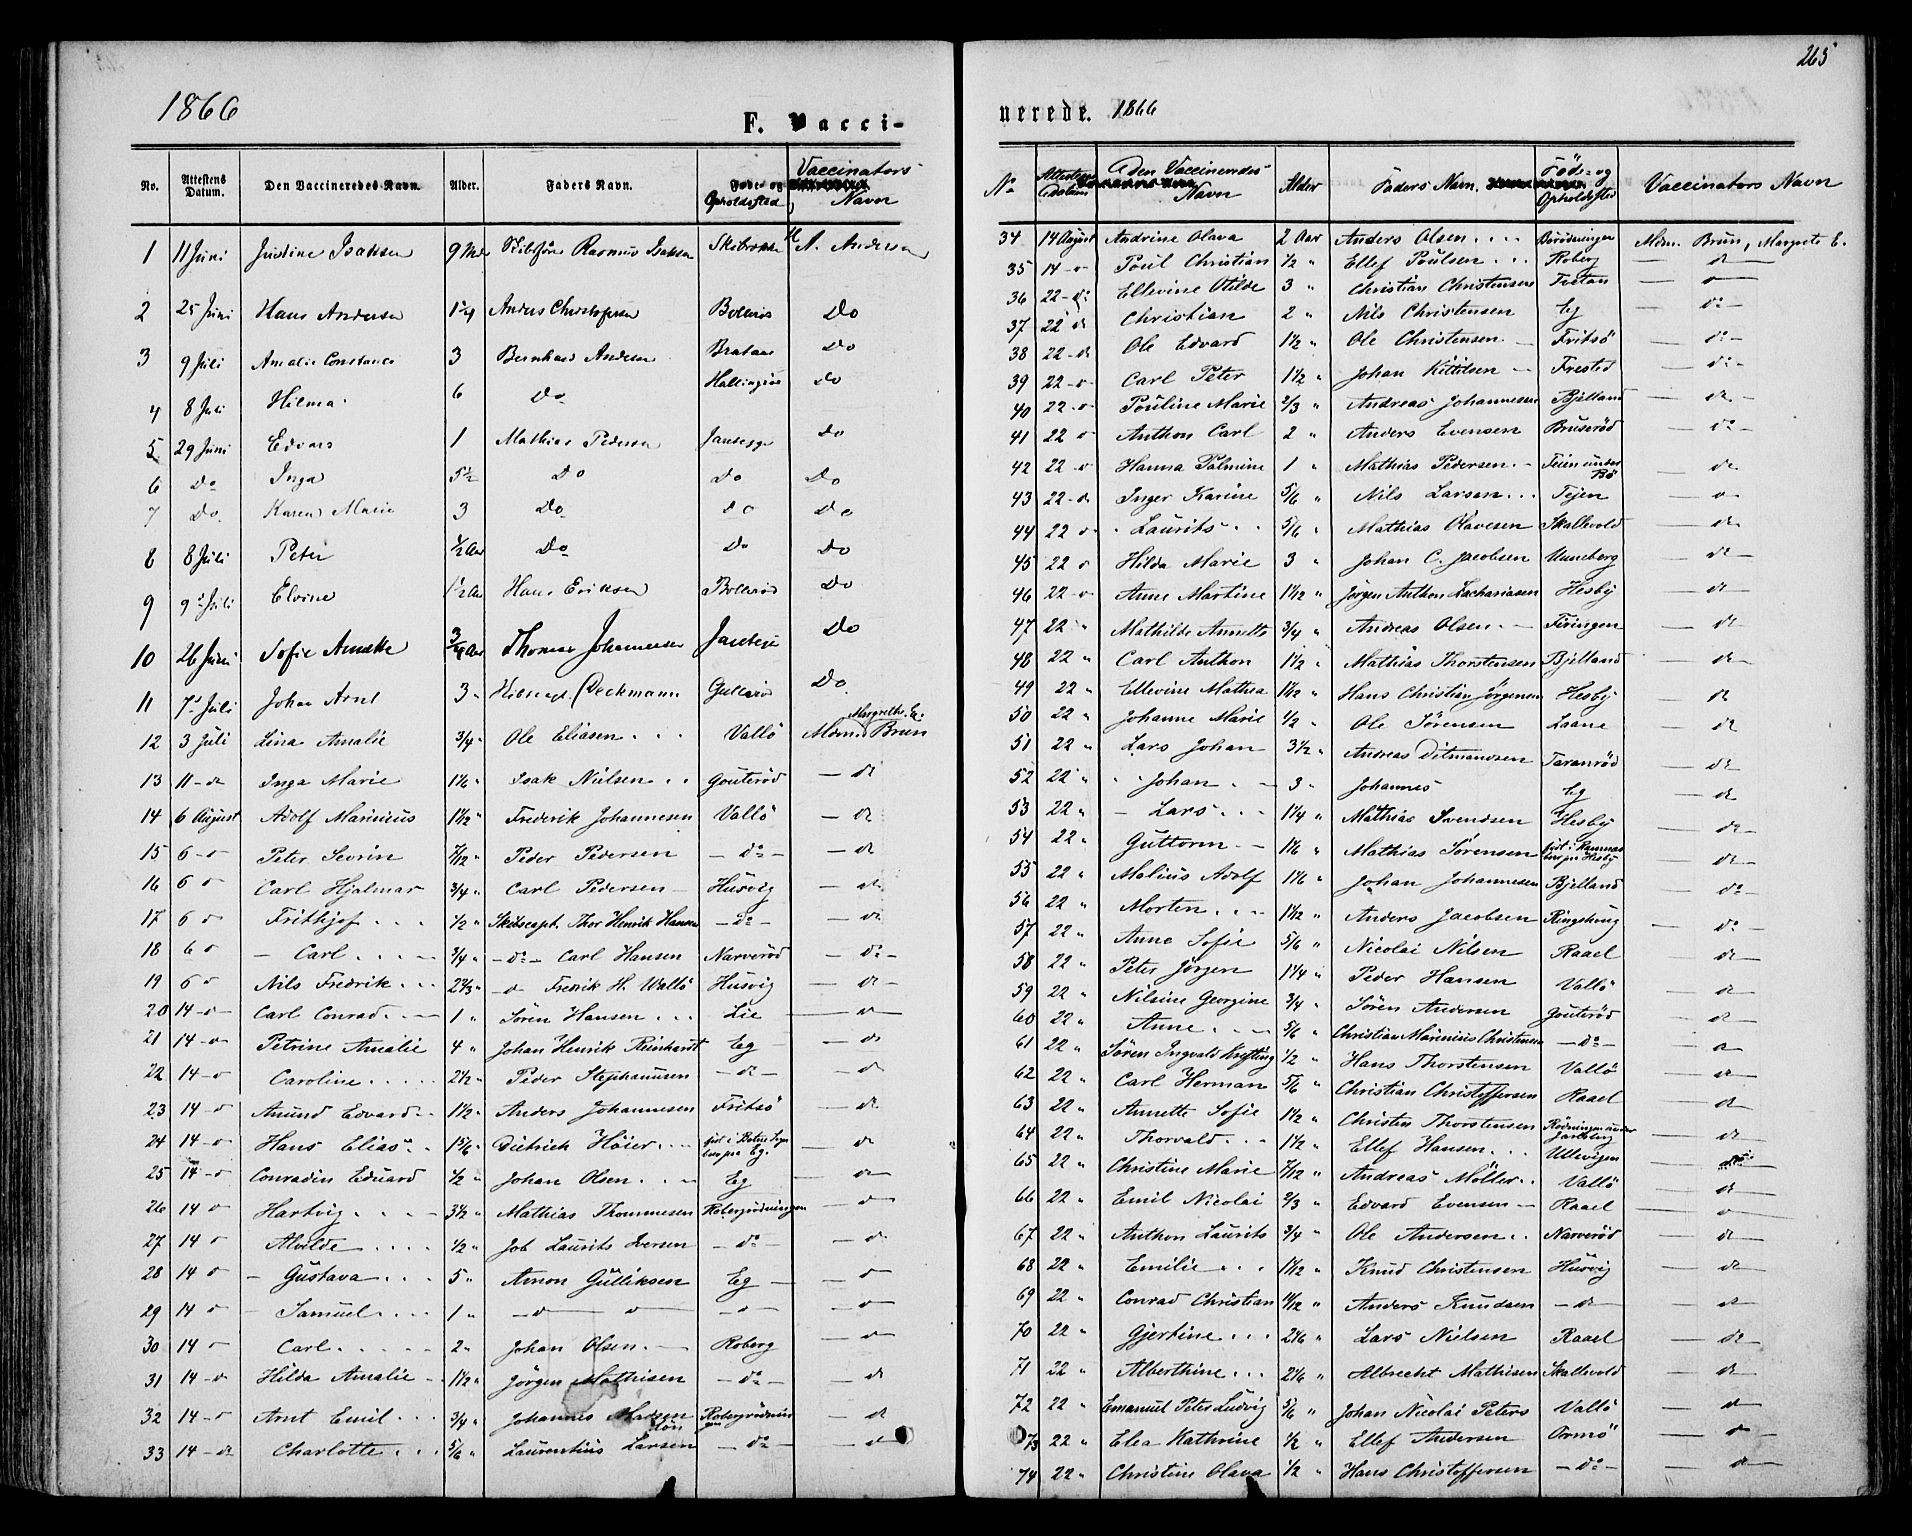 265
1866
F. Vacci-
No. Attestens Datum. Den Vaccineredes Navn. Alder. Faders Navn. Føde- og Opholdssted Vaccinators Navn
1 11 Juni Justine Isaksen 9 Rasmus Isaksen A. Andersen
2 25 Juni Hans Andersen Anders Christofersen Do
3 9 Juli Amalie Constance 3 Bernhard Andersen Do
4 8 Juli Hilma 6 Do Do
5 29 Juni Edvard 1 Mathias Pedersen Do
6 Do Inga 5½ Do Do Do
7 Do Karen Marie 3 Do Do Do
8 8 Juli Peter ½ Aar Do Do Do
9 9 Juli Elvine 1½ Aar Hans Eriksen Bollerød Do
10 26 Juni Sofie Annette 3/4 Aar Thomas Johannesen Do
11 7 Juli Johan Arnt 3 " Beckmann Gullerød Do
12 3 Juli Lina Amalie 3/4 " Ole Eliasen Vallö Mdm Margrethe E. Brun
13 11 - do Inga Marie 1 1/6 " Isak Nielsen Gouteröd - do
14 6 August Adolf Marinius 1 1/2 " Frederik Johannesen Vallö - do
15 6 - o Peter Severin 7/12 " Peder Pedersen - do - - do
16 6 o Carl Hjalmar 3/4 " Carl Pedersen Husvig - do
17 6 o Frithjof 1/2 " Skibscapt. Thor Henrik Hansen - do - - do
18 6 o - Carl 3/4 " - do - Carl Hansen Narveröd - do -
19 6 o Nils Fredrik 2 2/3 " - o Fredrik H. Wallö Husvig - do -
20 14 - o Carl Conrad 1 " Sören Hansen Lie - o
21 14 - o Petrine Amalie 4 " Johan Henrik Reinhardt Eg - do
22 14 - o Caroline 2 1/2 " Peder Stephansen - do - - do
23 14 - o Amund Edvard 1 1/2 " Anders Johannesen Fritsö - do
24 14 - o Hans Elias 1 5/6 " Dietrich Höier Eg. - do
25 14 - o Conradin Eduard 1/2 " Johan Olsen Eg - do
26 14 o Hartvig 3 1/2 " Mathias Thommesen Robergrödningen - o
27 14 o Alvilde 1/2 " Job Laurits Iversen - do - - do
28 14 o - Gustava 5 " Arnon Gulliksen Eg - o
29 14 o - Samuel 1 " - o o - o - - o
30 14 o Carl 2 " Johan Olsen Roberg - o
31 14 - o Hilda Amalie 1 1/2 " Jörgen Mathisen - do - - do
32 14 - o Arnt Emil 3/4 " Johannes Madsen Robergrödningen - do
33 14 - do Charlotte 5/6 " Laurentius Larsen - do - - do
nerede. 1866
No Attestens Datum Den Vaccineredes Navn Alder Faders Navn. Föde- og Opholdssted Vaccinators Navn
34 14 August Andrine Olava 2 Aar Anders Olsen Mdm. Brun, Margrete E.
35 14 - o Poul Christian 1/2 " Ellef Poulsen Roberg - do
36 22 - do Ellevine Otilde 3 " Christian Christensen - o
37 22 do Christian 2 " Nils Christensen Eg - do -
38 22 - do Ole Edvard 1 1/2 " Ole Christensen Fritsö - do -
39 22 - o Carl Peter 1 1/2 " Johan Kittilsen Frested - do -
40 22 - o Pouline Marie 2/3 " Andreas Johannesen Bjelland - do -
41 22 o Anthon Carl 2 " Anders Evensen Bruseröd - do -
42 22 - o Hanna Palmine 1 " Mathias Pedersen Teien under Bö - do
43 22 - do Inger Karine 5/6 " Nils Larsen Tejen - o
44 22 o Laurits 5/6 " Mathias Olavesen Skallevold - do
45 22 o Hilda Marie 3 " Johan C. Jacobsen Unneberg - do -
46 22 - o Anne Martine 1 1/12 " Jörgen Anthon Zachariasen Hesby - do -
47 22 " Mathilde Annette 3/4 " Andreas Olsen - do
48 22 " Carl Anthon 1 1/2 " Mathias Thorstensen Bjelland - do -
49 22 " Ellevine Mathea 1 1/12 " Hans Christian Jörgensen Hesby - do
50 22 " Johanne Marie 1/2 " Ole Sörensen Laane - do
51 22 " Lars Johan 3 1/2 " Andreas Ditmandsen Taranröd - do
52 22 " Johan 3 " Johannes Eg - do
53 22 " - Lars 1 1/4 " Mathias Svendsen Hesby - do -
54 22 " Guttorm 1 1/6 " Mathias Sörensen - do -
55 22 " Malius Adolf 1 1/6 " Johan Johannesen Bjelland - do -
56 22 " Morten 1 1/2 " Anders Jacobsen Ringshoug - do -
57 22 " Anne Sofie 5/6 " Nicolai Nilsen Raael - do
58 22 " Peter Jörgen 1 1/4 " Peder Hansen Vallö - do
59 22 " Nilsine Georgine 3/4 " Sören Andersen Gouteröd - do
60 22 " Anne 5/6 " Christian Marinius Christensen - do - - o
61 22 " Sören Ingvald Krefting 1/2 " Hans Thorstensen Vallö - do
62 22 " Carl Herman 5/6 " Christian Christoffersen Raael - do
63 22 " Annette Sofie 1 1/2 " Christen Thorstensen Rödningen under Jarlsberg - do
64 22 " Thorvald 1 1/2 " Ellef Hansen Ullevigen - do
65 22 " Christine Marie 7/12 " Andreas Möller Vallö - do
66 22 " Emil Nicolai 2/3 " Edvard Evensen Raael - o
67 22 " Anthon Laurits 3/4 " Ole Andersen Narveröd - do
68 22 " Emilie 1 1/2 " Knud Christensen Husvig - do
69 22 " Conrad Christian 11/12 " Anders Knudsen - do - - do
70 22 " Gjertine 2 1/6 " Lars Nielsen Raael - do
71 22 " Alberthine 2 1/6 " Albrecht Mathisen Skallevold - do
72 22 " Emanuel Peter Ludvig 5/6 " Johan Nicolai Peters Vallö - do
73 22 " Elea Kathrine 1/2 " Ellef Andersen Ormö - do
74 22 " Christine Olava 1/2 " Hans Christoffersen - do - - do